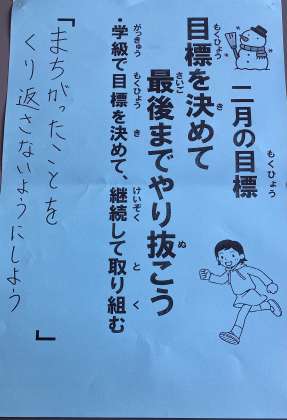 二月の目標
もくひょう
目標を決めて
もくひょう き
最後までやり抜こう
さいご ぬ
・学級で目標を決めて、継続して取り組む
がっきゅう もくひょう き けいぞく と く
「まちがったことを
くり返さないようにしよう」